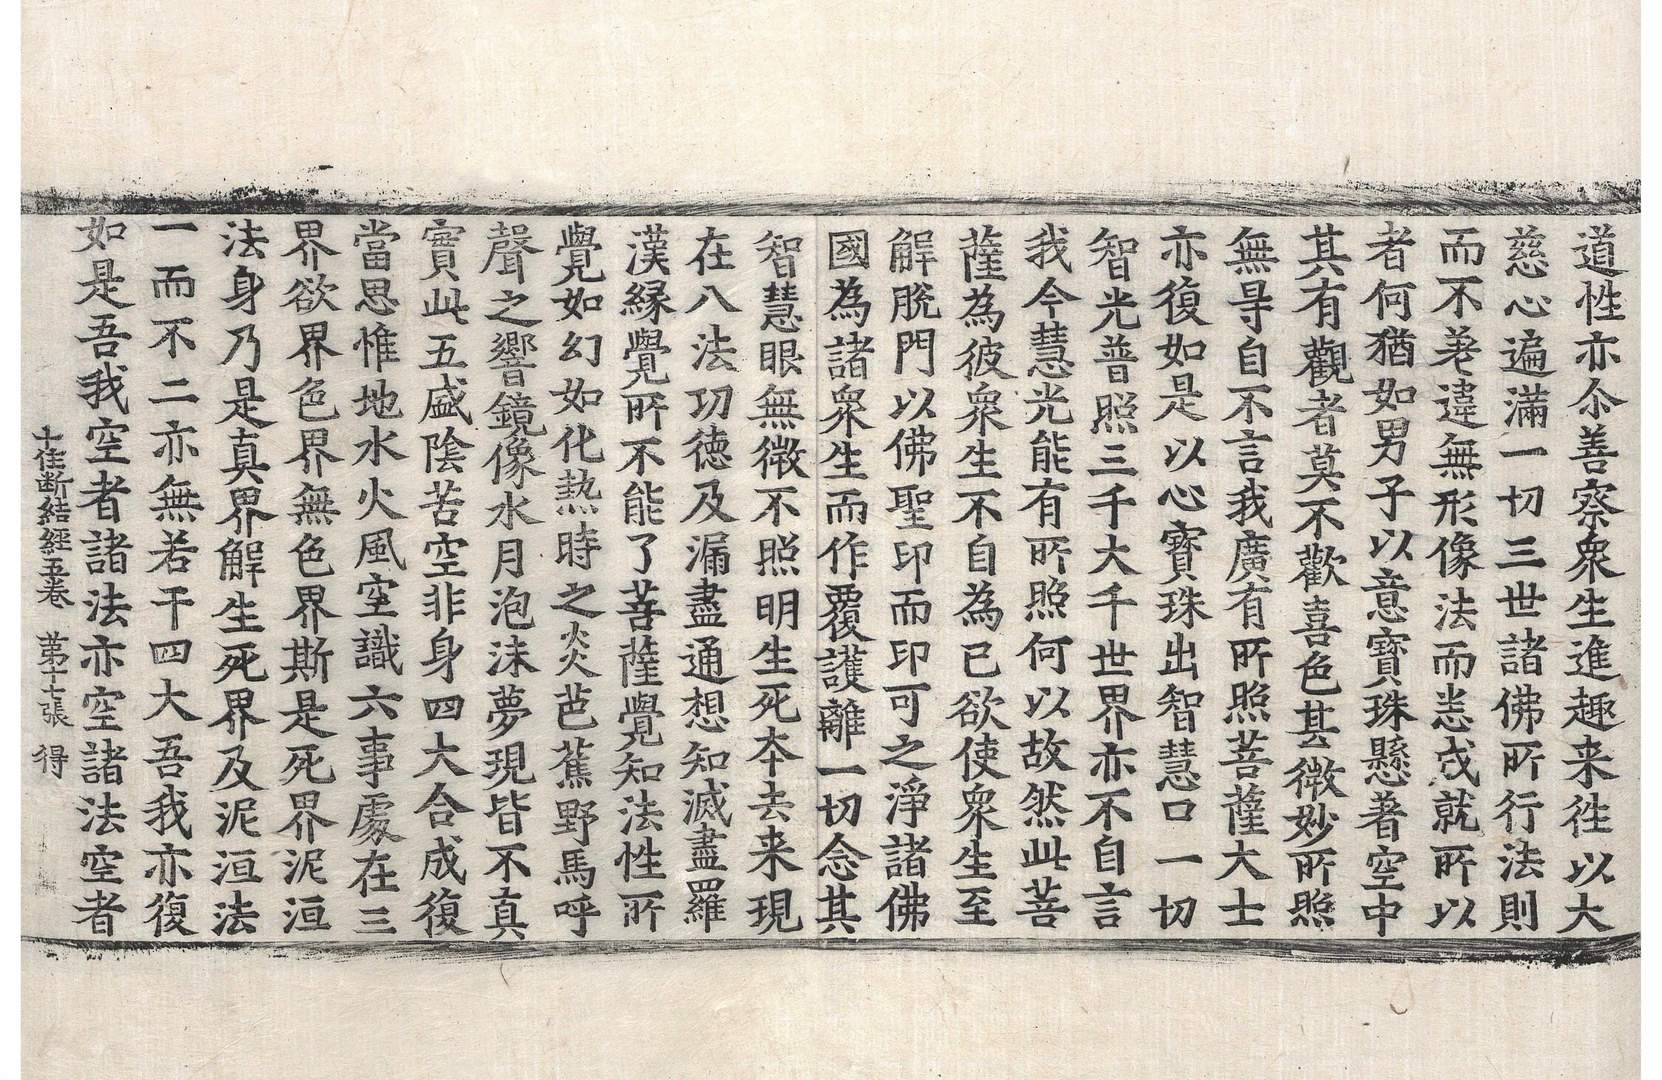 道性亦尒善察衆生進趣来往以大
慈心遍滿一切三世諸佛所行法則
而不差違無形像法而悉成就所以
者何猶如男子以意寶珠懸著空中
其有觀者莫不歡喜色甚微妙所照
無㝵自不言我廣有所照菩薩大士
亦復如是以心寶珠出智慧口一切
智光普照三千大千世界亦不自言
我今慧光能有所照何以故然此菩
薩為彼衆生不自為已欲使衆生至
解脫門以佛聖印而印可之淨諸佛
國為諸衆生而作覆護離一切念其
智慧眼無微不照明生死本去来現
在八法功德及漏盡通想知滅盡羅
漢緣覺所不能了菩薩覺知法性所
覺如幻如化熱時之炎芭蕉野馬呼
聲之響鏡像水月泡沫夢現皆不真
實此五盛陰苦空非身四大合成復
當思惟地水火風空識六事處在三
界欲界色界無色界斯是死界泥洹
法身乃是真界解生死界及泥洹法
一而不二亦無若干四大吾我亦復
如是吾我空者諸法亦空諸法空者
十住断結經五卷 第十七張 得